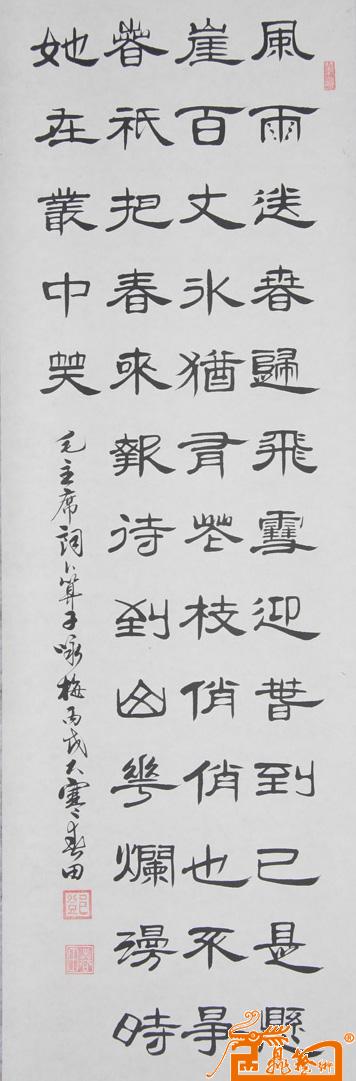 風雨送春歸飛雪迎春到已是懸
崖百丈冰猶有花枝俏俏也不爭
春祇把春來報待到山花爛漫時
她在叢中笑
毛主席詞卜算子咏梅丙戌大寒春田